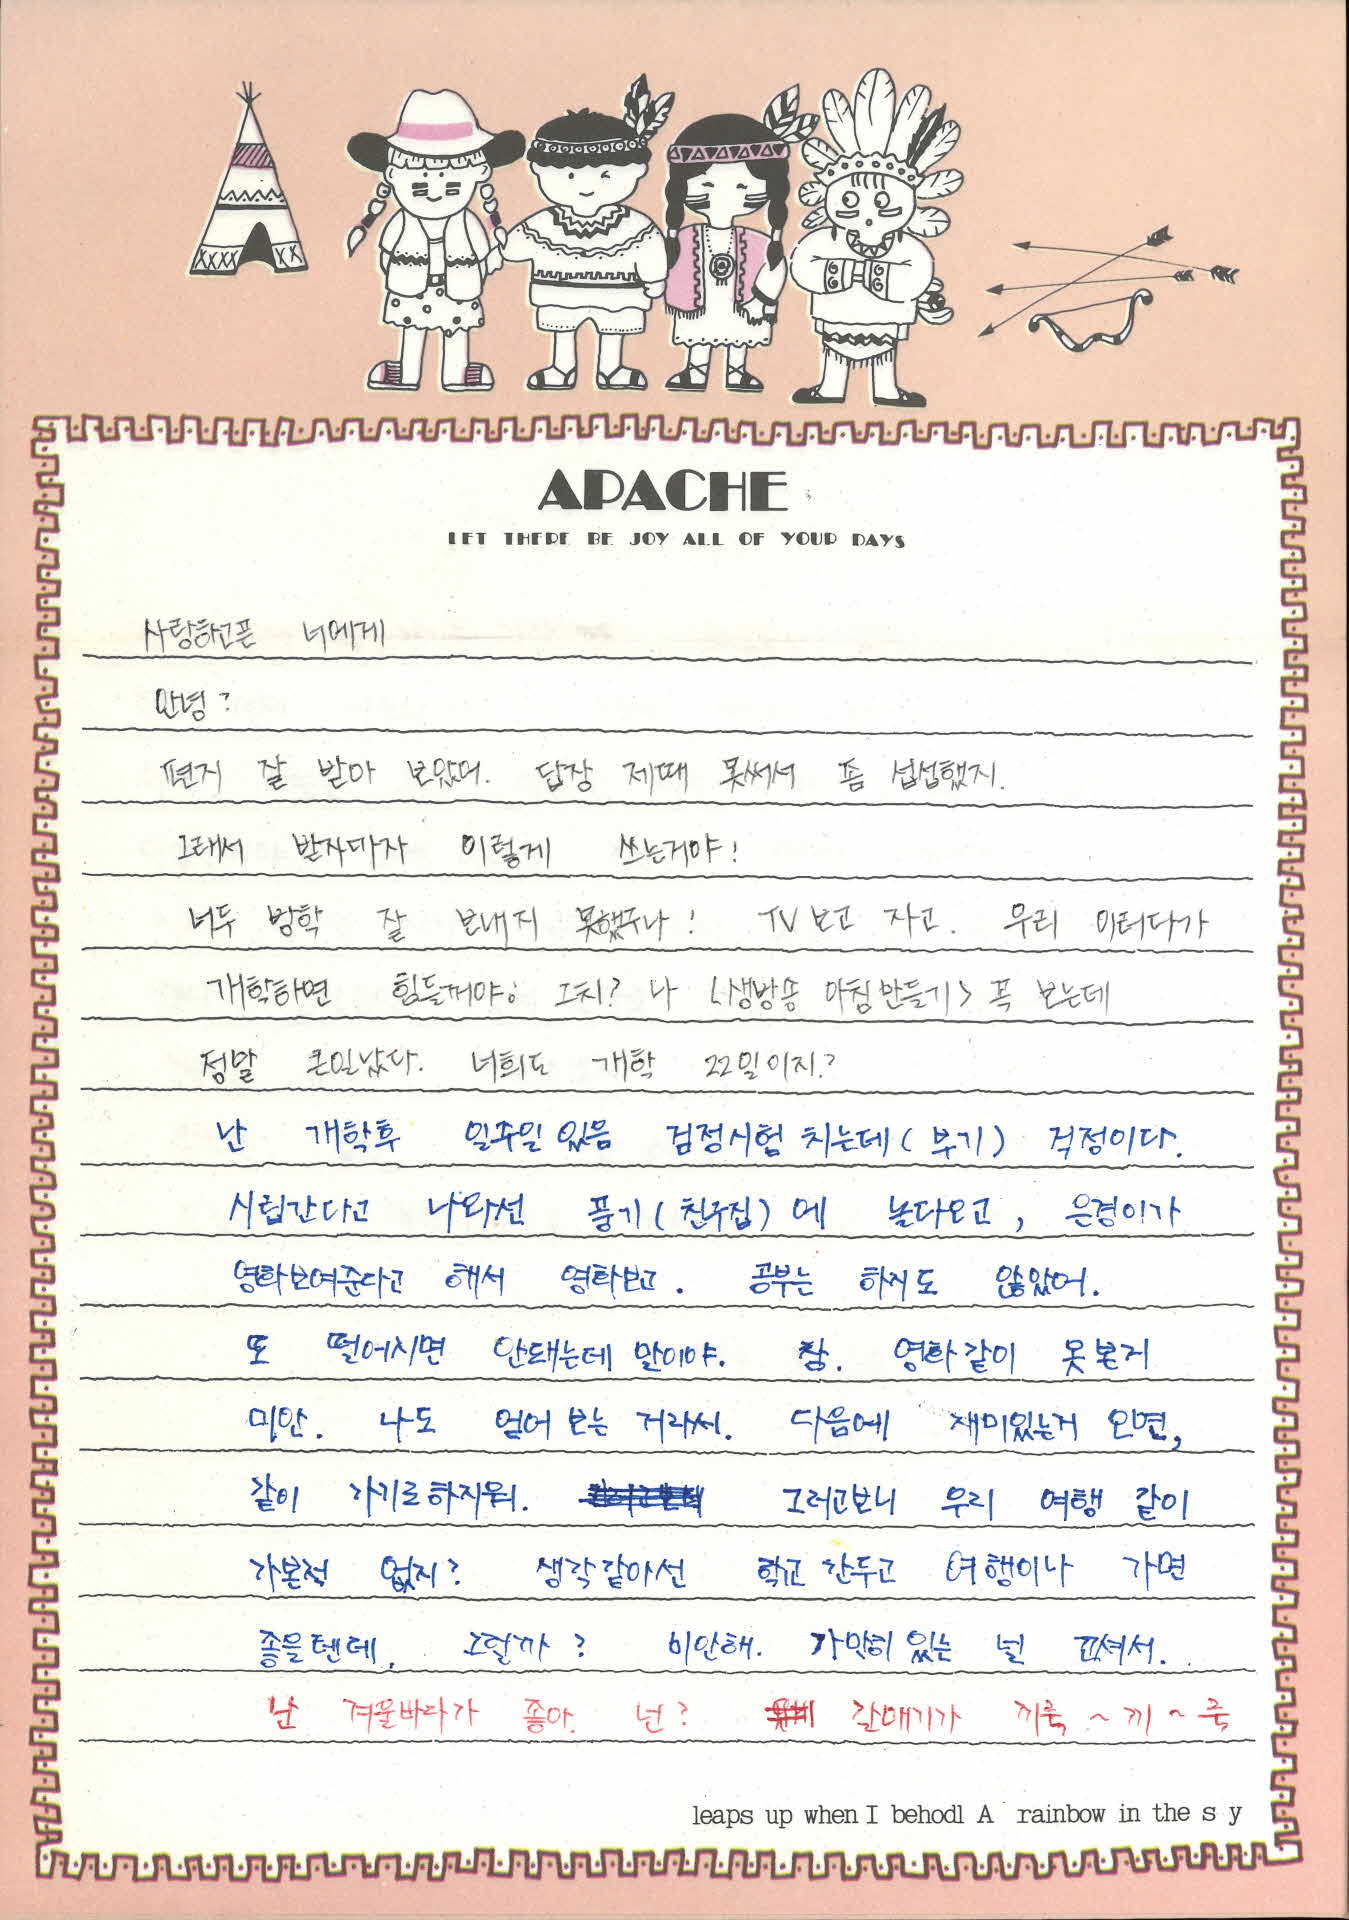 APACHE
LET THERE BE JOY ALL OF YOUR DAYS
사랑하고픈 너에게
안녕?
편지 잘 받아 보았어. 답장 제때 못써서 좀 섭섭했지.
그래서 받자마자 이렇게 쓰는거야!
너두 방학 잘 보내지 못했구나! TV 보고 자고. 우리 이러다가
개학하면 힘들꺼야; 그치? 나 <생방송 아침만들기> 꼭 보는데
정말 큰일났다. 너희도 개학 22일이지?
난 개학후 일주일 있음 검정시험 치는데(부기) 걱정이다.
시립간다고 나와선 풍기(친구집)에 놀다오고, 은경이가
영화보여준다고 해서 영화보고. 공부는 하지도 않았어.
또 떨어지면 안돼는데 말이야. 참. 영화같이 못본거
미안. 나도 얻어 보는 거라서. 다음에 재미있는거 오면,
같이 가기로하지뭐. 그러고보니 우리 여행 같이
가본적 없지? 생각같아선 학교 간두고 여행이나 가면
좋을텐데. 그럴까? 미안해. 가만히 있는 널 꼬셔서.
난 겨울바다가 좋아. 넌? 갈매기가 끼룩~끼~룩
leaps up when I behodl A rainbow in the s y